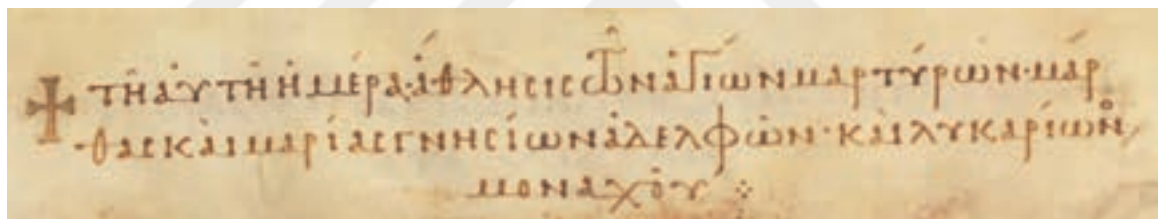 ✠ τῆ αὐτῆ ἡμέρα· ἄθλησις τῶν ἁγίων μαρτύρων· μάρ
θας καὶ μαρίας γνησίων ἀδελφῶν· καὶ λυκαρίων
μοναχοῦ ⁘